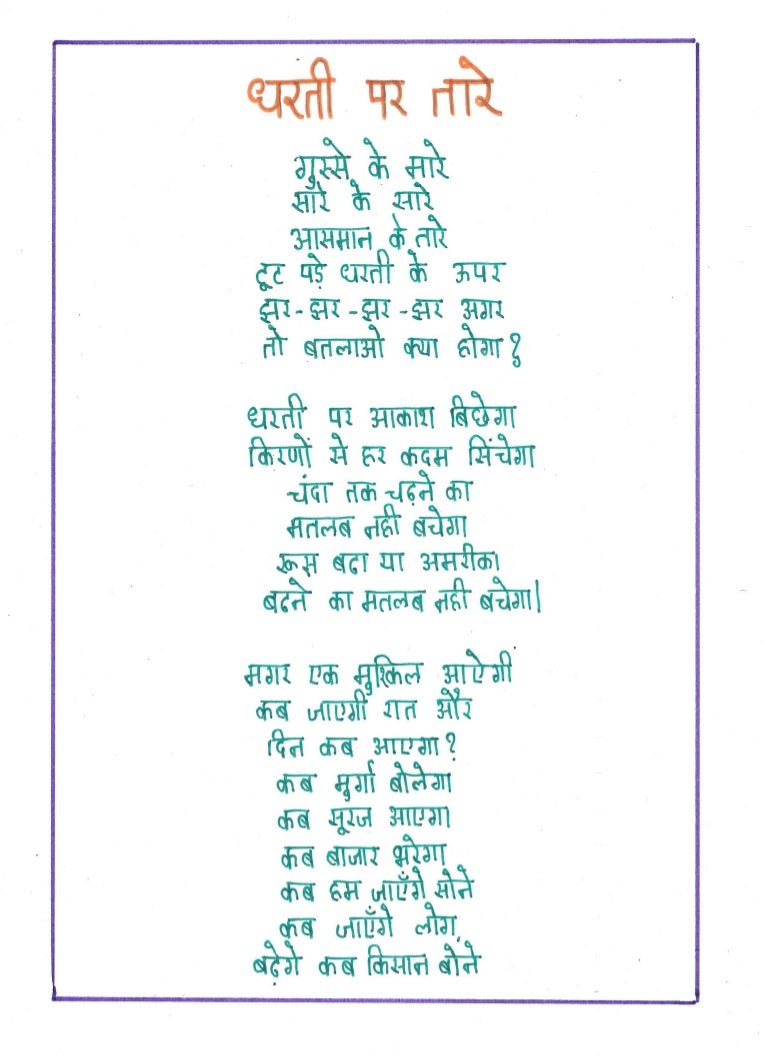 धरती पर तारे
गुस्से के मारे
सारे के सारे
आसमान के तारे
टूट पड़े धरती के ऊपर
झर-झर-झर-झर अगर
तो बतलाओ क्या होगा?
धरती पर आकाश बिछेगा
किरणों से हर कदम सिंचेगा
चंदा तक चढ़ने का
मतलब नही बचेगा
रूस बढा या अमरीका
बढने का मतलब नही बचेगा।
मगर एक मुश्किल आऐगी
कब जाएगी रात और
दिन कब आएगा?
कब मुर्गा बोलेगा
कब सूरज आएगा
कब बाजार भरेगा
कब हम जाएँगे सोने
कब जाएँगे लोग,
बढ़ेगे कब किसान बोने